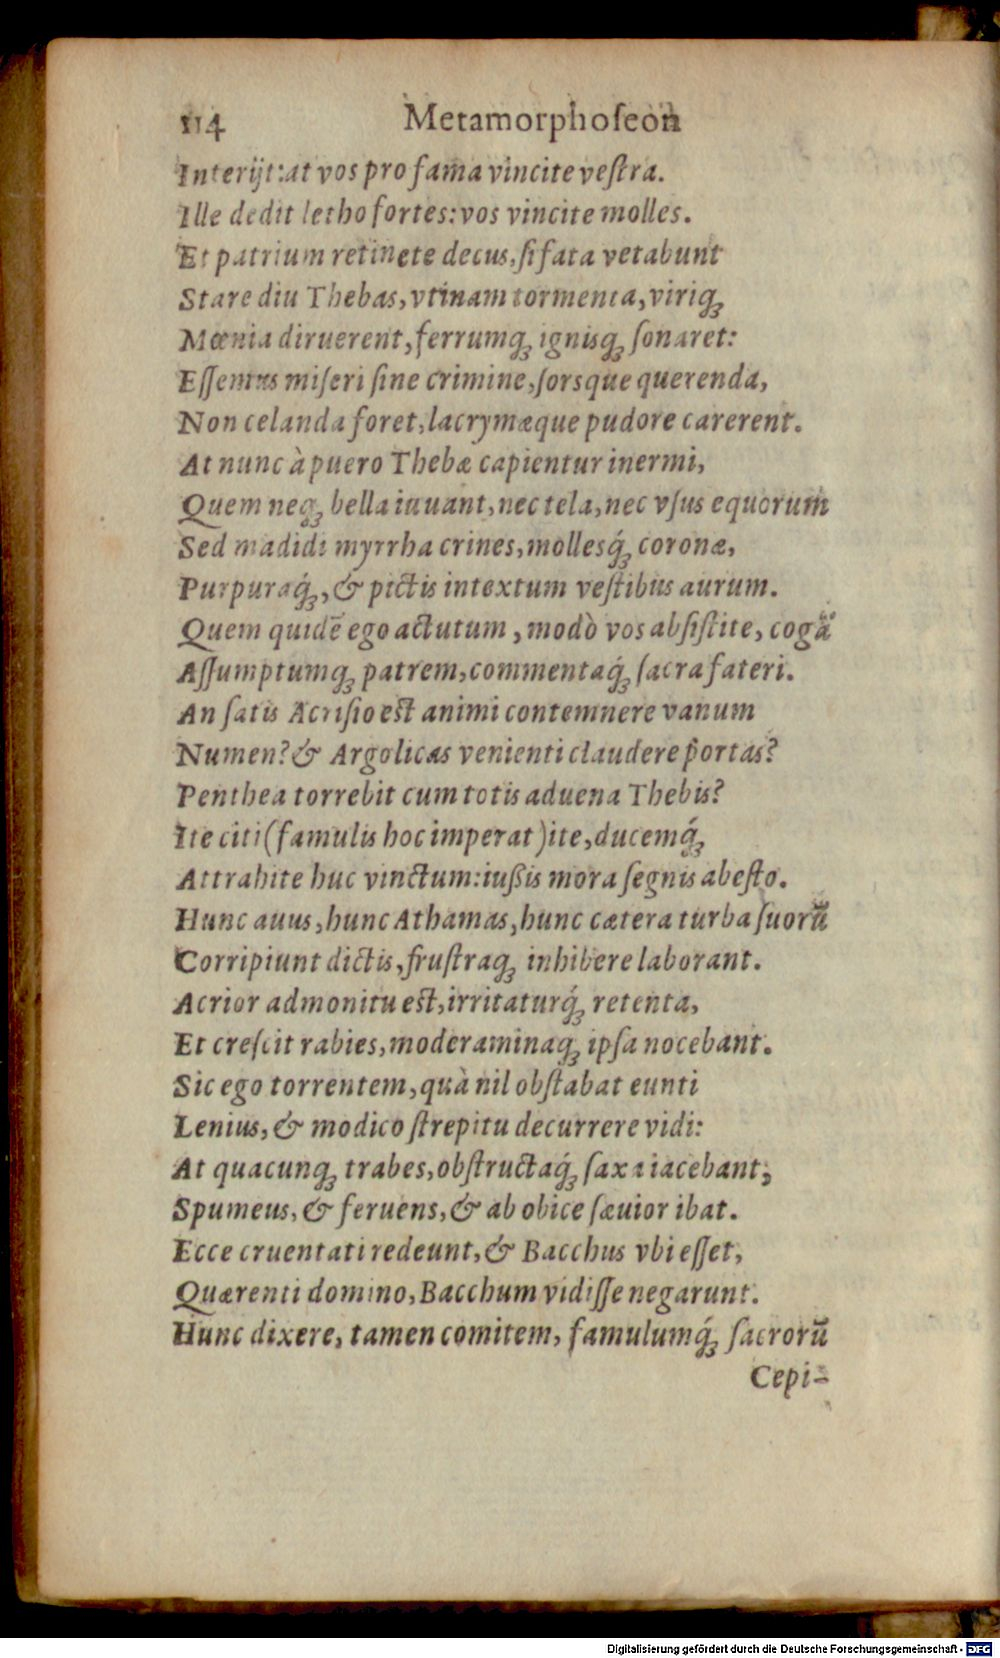 114 Metamorphoſeon
Interijt: at vos pro fama vincite veſtra.
Ille dedit letho fortes: vos vincite molles.
Et patrium retinete decus, ſi fata vetabunt
Stare diu Thebas, vtinam tormenta, viriq́;
Mœnia diruerent, ferrumq; igniſq; ſonaret:
Eſſemus miſeri ſine crimine, ſorsque querenda,
Non celanda foret, lacrymæque pudore carerent.
At nunc à puero Thebæ capientur inermi,
Quem neq; bella iuuant, nec tela, nec vſus equorum
Sed madidi myrrha crines, mollesq́; coronæ,
Purpuraq́;, & pictis intextum veſtibus aurum.
Quem quidẽ ego actutum, modò vos abſiſtite, cogã
Aſſumptumq; patrem, commentaq́; ſacra fateri.
An ſatis Acriſio eſt animi contemnere vanum
Numen? & Argolicas venienti claudere portas?
Penthea torrebit cum totis aduena Thebis?
Ite citi (famulis hoc imperat) ite, ducemq́;
Attrahite huc vinctum: iußis mora ſegnis abeſto.
Hunc auus, hunc Athamas, hunc cætera turba ſuorũ
Corripiunt dictis, fruſtraq; inhibere laborant.
Acrior admonitu eſt, irritaturq́; retenta,
Et creſcit rabies, moderaminaq; ipſa nocebant.
Sic ego torrentem, quà nil obſtabat eunti
Lenius, & modico ſtrepitu decurrere vidi:
At quacunq; trabes, obſtructaq́; ſaxa iacebant;
Spumeus, & feruens, & ab obice ſæuior ibat.
Ecce cruentati redeunt, & Bacchus vbi eſſet,
Quærenti domino, Bacchum vidiſſe negarunt.
Hunc dixere, tamen comitem, famulumq́; ſacrorũ
Cepi-
Digitalisierung gefördert durch die Deutsche Forschungsgemeinschaft - DFG